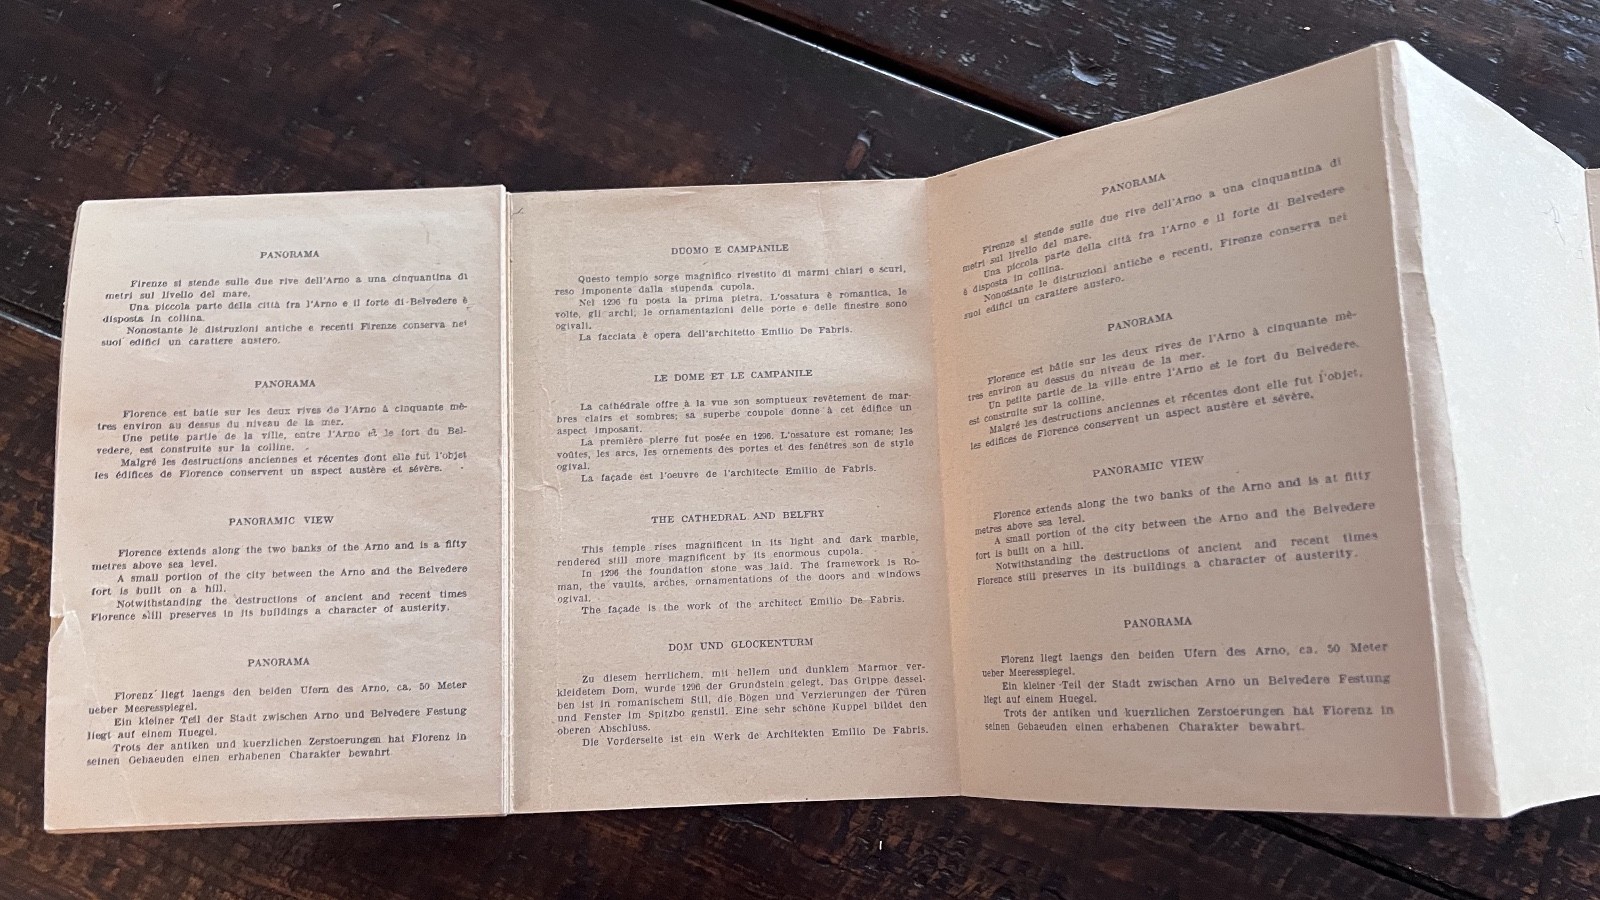 PANORAMA
Firenze si stende sulle due rive dell'Arno a una cinquantina di
metri sul livello del mare.
Una piccola parte della città fra l'Arno e il forte di Belvedere è
disposta in collina.
Nonostante le distruzioni antiche e recenti Firenze conserva nei
suoi edifici un carattere austero.
PANORAMA
Florence est batie sur les deux rives de l'Arno à cinquante mè-
tres environ au dessus du niveau de la mer.
Une petite partie de la ville, entre l'Arno et le fort du Bel-
vedere, est construite sur la colline.
Malgré les destructions anciennes et récentes dont elle fut l'objet
les édifices de Florence conservent un aspect austère et sévère.
PANORAMIC VIEW
Florence extends along the two banks of the Arno and is a fifty
metres above sea level.
A small portion of the city between the Arno and the Belvedere
fort is built on a hill.
Notwithstanding the destructions of ancient and recent times
Florence still preserves in its buildings a character of austerity.
PANORAMA
Florenz liegt laengs den beiden Ufern des Arno, ca. 50 Meter
ueber Meeresspiegel.
Ein kleiner Teil der Stadt zwischen Arno und Belvedere Festung
liegt auf einem Huegel.
Trots der antiken und kuerzlichen Zerstoerungen hat Florenz in
seinen Gebaeuden einen erhabenen Charakter bewahrt
DUOMO E CAMPANILE
Questo tempio sorge magnifico rivestito di marmi chiari e scuri,
reso imponente dalla stupenda cupola.
Nel 1296 fu posta la prima pietra. L'ossatura è romantica, le
volte, gli archi, le ornamentazioni delle porte e delle finestre sono
ogivali.
La facciata è opera dell'architetto Emilio De Fabris.
LE DOME ET LE CAMPANILE
La cathédrale offre à la vue son somptueux revêtement de mar-
bres clairs et sombres; sa superbe coupole donne à cet édifice un
aspect imposant.
La première pierre fut posée en 1296. L'ossature est romane; les
voûtes, les arcs, les ornements des portes et des fenêtres son de style
ogival.
La façade est l'oeuvre de l'architecte Emilio de Fabris.
THE CATHEDRAL AND BELFRY
This temple rises magnificent in its light and dark marble,
rendered still more magnificent by its enormous cupola.
In 1296 the foundation stone was laid. The framework is Ro-
man, the vaults, arches, ornamentations of the doors and windows
ogival.
The façade is the work of the architect Emilio De Fabris.
DOM UND GLOCKENTURM
Zu diesem herrlichem, mit hellem und dunklem Marmor ver-
kleidetem Dom, wurde 1296 der Grundstein gelegt. Das Grippe dessel-
ben ist in romanischem Stil, die Bögen und Verzierungen der Türen
und Fenster im Spitzbo genstil. Eine sehr schöne Kuppel bildet den
oberen Abschluss.
Die Vorderseite ist ein Werk de Architekten Emilio De Fabris.
PANORAMA
Firenze si stende sulle due rive dell'Arno a una cinquantina di
metri sul livello del mare.
Una piccola parte della città fra l'Arno e il forte di Belvedere
è disposta in collina.
Nonostante le distruzioni antiche e recenti, Firenze conserva nei
suoi edifici un carattere austero.
PANORAMA
Florence est bâtie sur les deux rives de l'Arno à cinquante mè-
tres environ au dessus du niveau de la mer.
Un petite partie de la ville entre l'Arno et le fort du Belvedere,
est construite sur la colline.
Malgré les destructions anciennes et récentes dont elle fut l'objet,
les édifices de Florence conservent un aspect austère et sévère.
PANORAMIC VIEW
Florence extends along the two banks of the Arno and is at fifty
metres above sea level.
A small portion of the city between the Arno and the Belvedere
fort is built on a hill.
Notwithstanding the destructions of ancient and recent times
Florence still preserves in its buildings a character of austerity.
PANORAMA
Florenz liegt laengs den beiden Ufern des Arno, ca. 50 Meter
ueber Meeresspiegel.
Ein kleiner Teil der Stadt zwischen Arno un Belvedere Festung
liegt auf einem Huegel.
Trots der antiken und kuerzlichen Zerstoerungen hat Florenz in
seinen Gebaeuden einen erhabenen Charakter bewahrt.